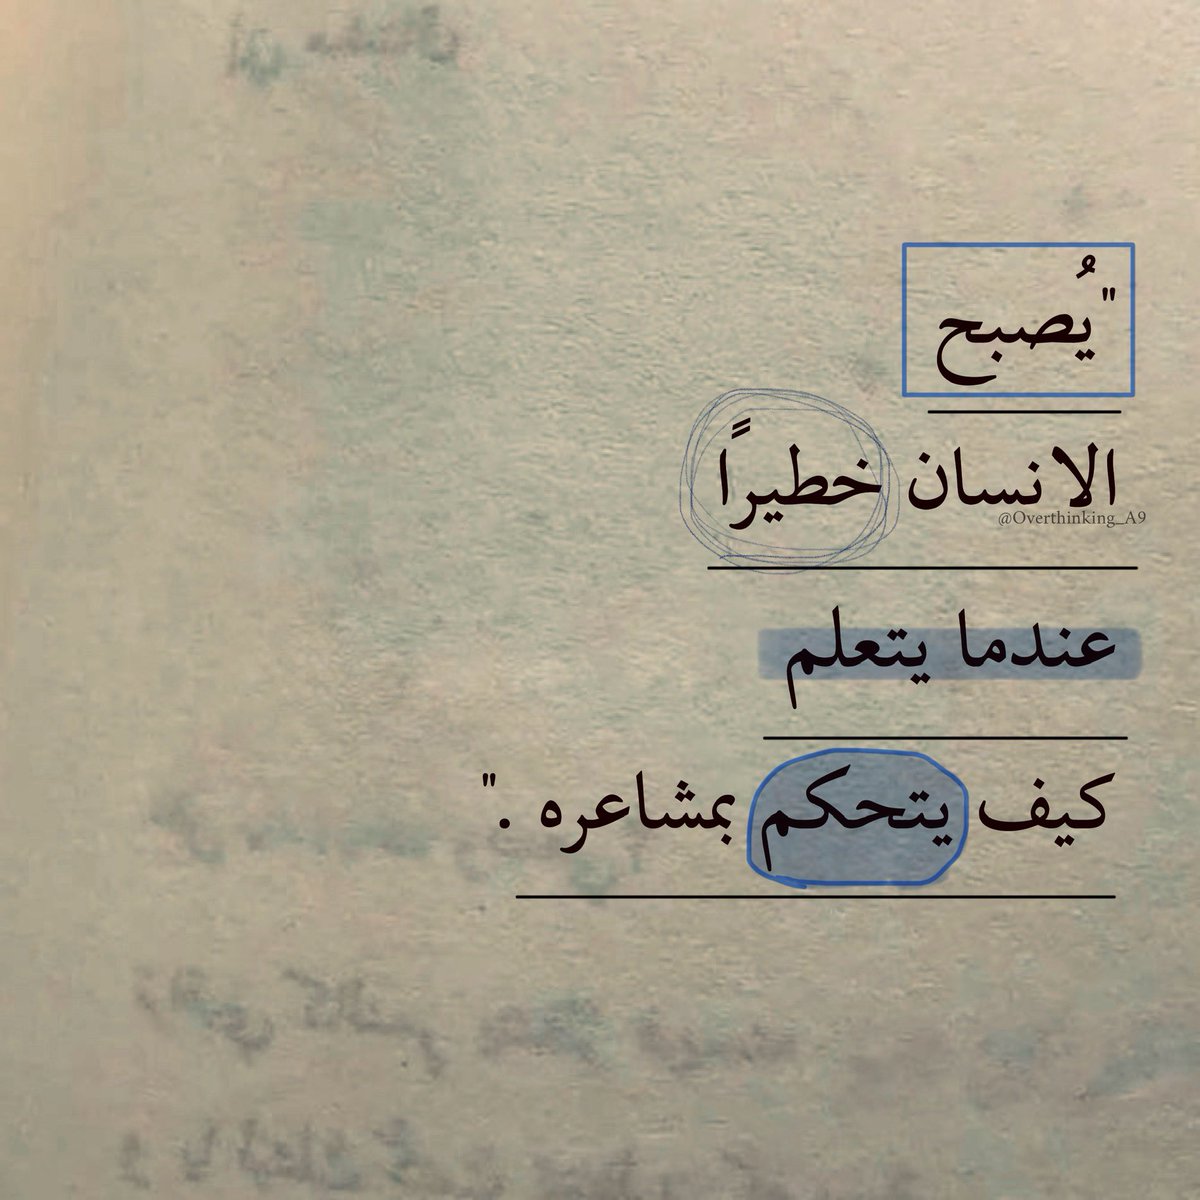 "يُصبح
الانسان خطيرًا
@Overthinking_A9
عندما يتعلم
كيف يتحكم بمشاعره ."